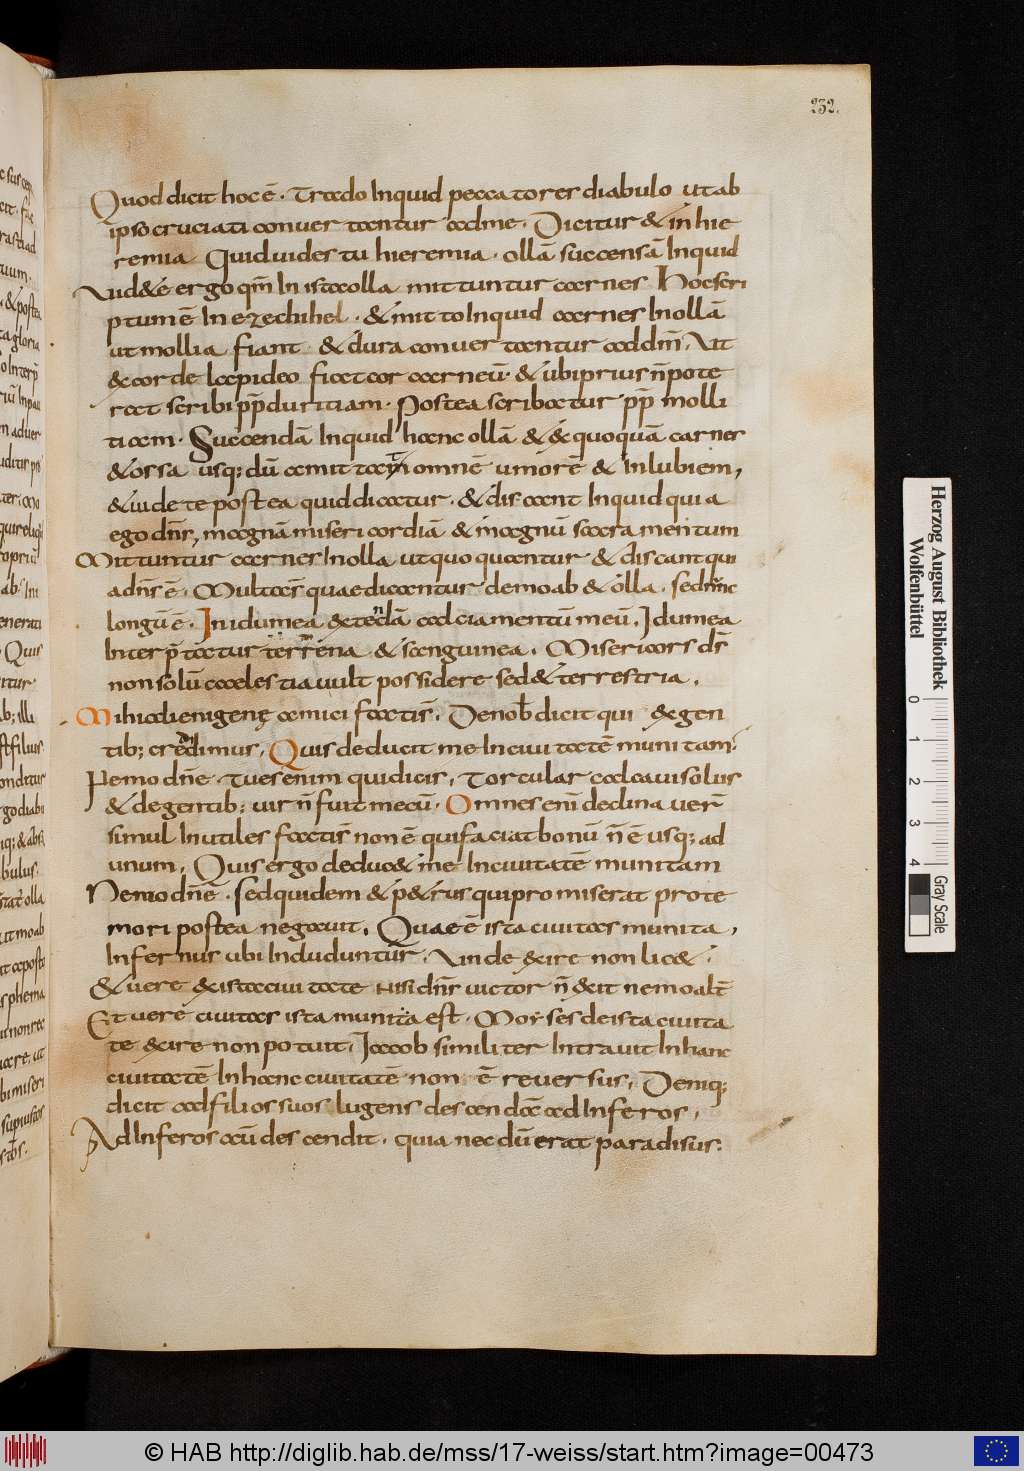 232.
Quod dicit hoc ē · Trado Inquid peccatorer diabulo ut ab
ipso cruciati conuertantur adme · Dicitur & in hie
remia Quid uides tu hieremia · ollā succensā Inquid
Uid&e ergo qm̄ In ista olla mittuntur carnes Hoc scri
ptum ē In ezechihel · & mitto Inquid carnes In ollā
ut mollia fiant & dura conuertantur ad dm̄ · Ut
& cor de lapideo fiat cor carneū · & ubi prius n̄ pote
rat scribi pp̄ duritiam · Postea scribatur pp̄ molli
tiam · Succendā Inquid hanc ollā & & quoquā carnes
& ossa usq; dū amittat omnē umorē & Inlubiem,
& uidete postea quid dicatur · & discant Inquid quia
ego dn̄s, magnā misericordiā & magnū sacramentum
Mittuntur carnes In olla ut quoquantur & discant qui
a dn̄s ē · Multas quae dicantur de moab & olla · sed nunc
longū ē · In idumea &tendā calciamentū meū, Idumea
Interp̄tatur terrena & sanguinea, Misericors ds̄
non solū caelestia uult possidere sed & terrestria,
Mihi alienigenę amici facti s̄, De nob̄ dicit qui &gen
tib; credimus, Quis deducit me In ciuitatē munitam
Nemo dn̄e · tu es enim qui dicis, Torcular calcaui solus
& de gentib; uir n̄ fuit mecū · Omnes enī declinauer̄
simul Inutiles facti s̄ non ē qui faciat bonū n̄ ē usq; ad
unum, Quis ergo deduc& me In ciuitatē munitam
Nemo dn̄e · sed quidem & p&rus qui promiserat pro te
mori postea negauit, Quae ē ista ciuitas munita,
Infernus ubi Includuntur · Unde &ire non lic& ·
& uere &ista ciuitate nisi dn̄s uictor n̄ &it nemo alt̄
Et uere ciuitas ista munita est · Moyses de ista ciuita
te &ire non potuit, Iacob similiter Intrauit In hanc
ciuitatē In hanc ciuitatē non ē reuersus, Deniq;
dicit ad filios suos lugens descendā ad Inferos,
Ad Inferos aū descendit · quia necdū erat paradisus ·
Herzog August Bibliothek
Wolfenbüttel
0 1 2 3 4
Gray Scale
© HAB http://diglib.hab.de/mss/17-weiss/start.htm?image=00473